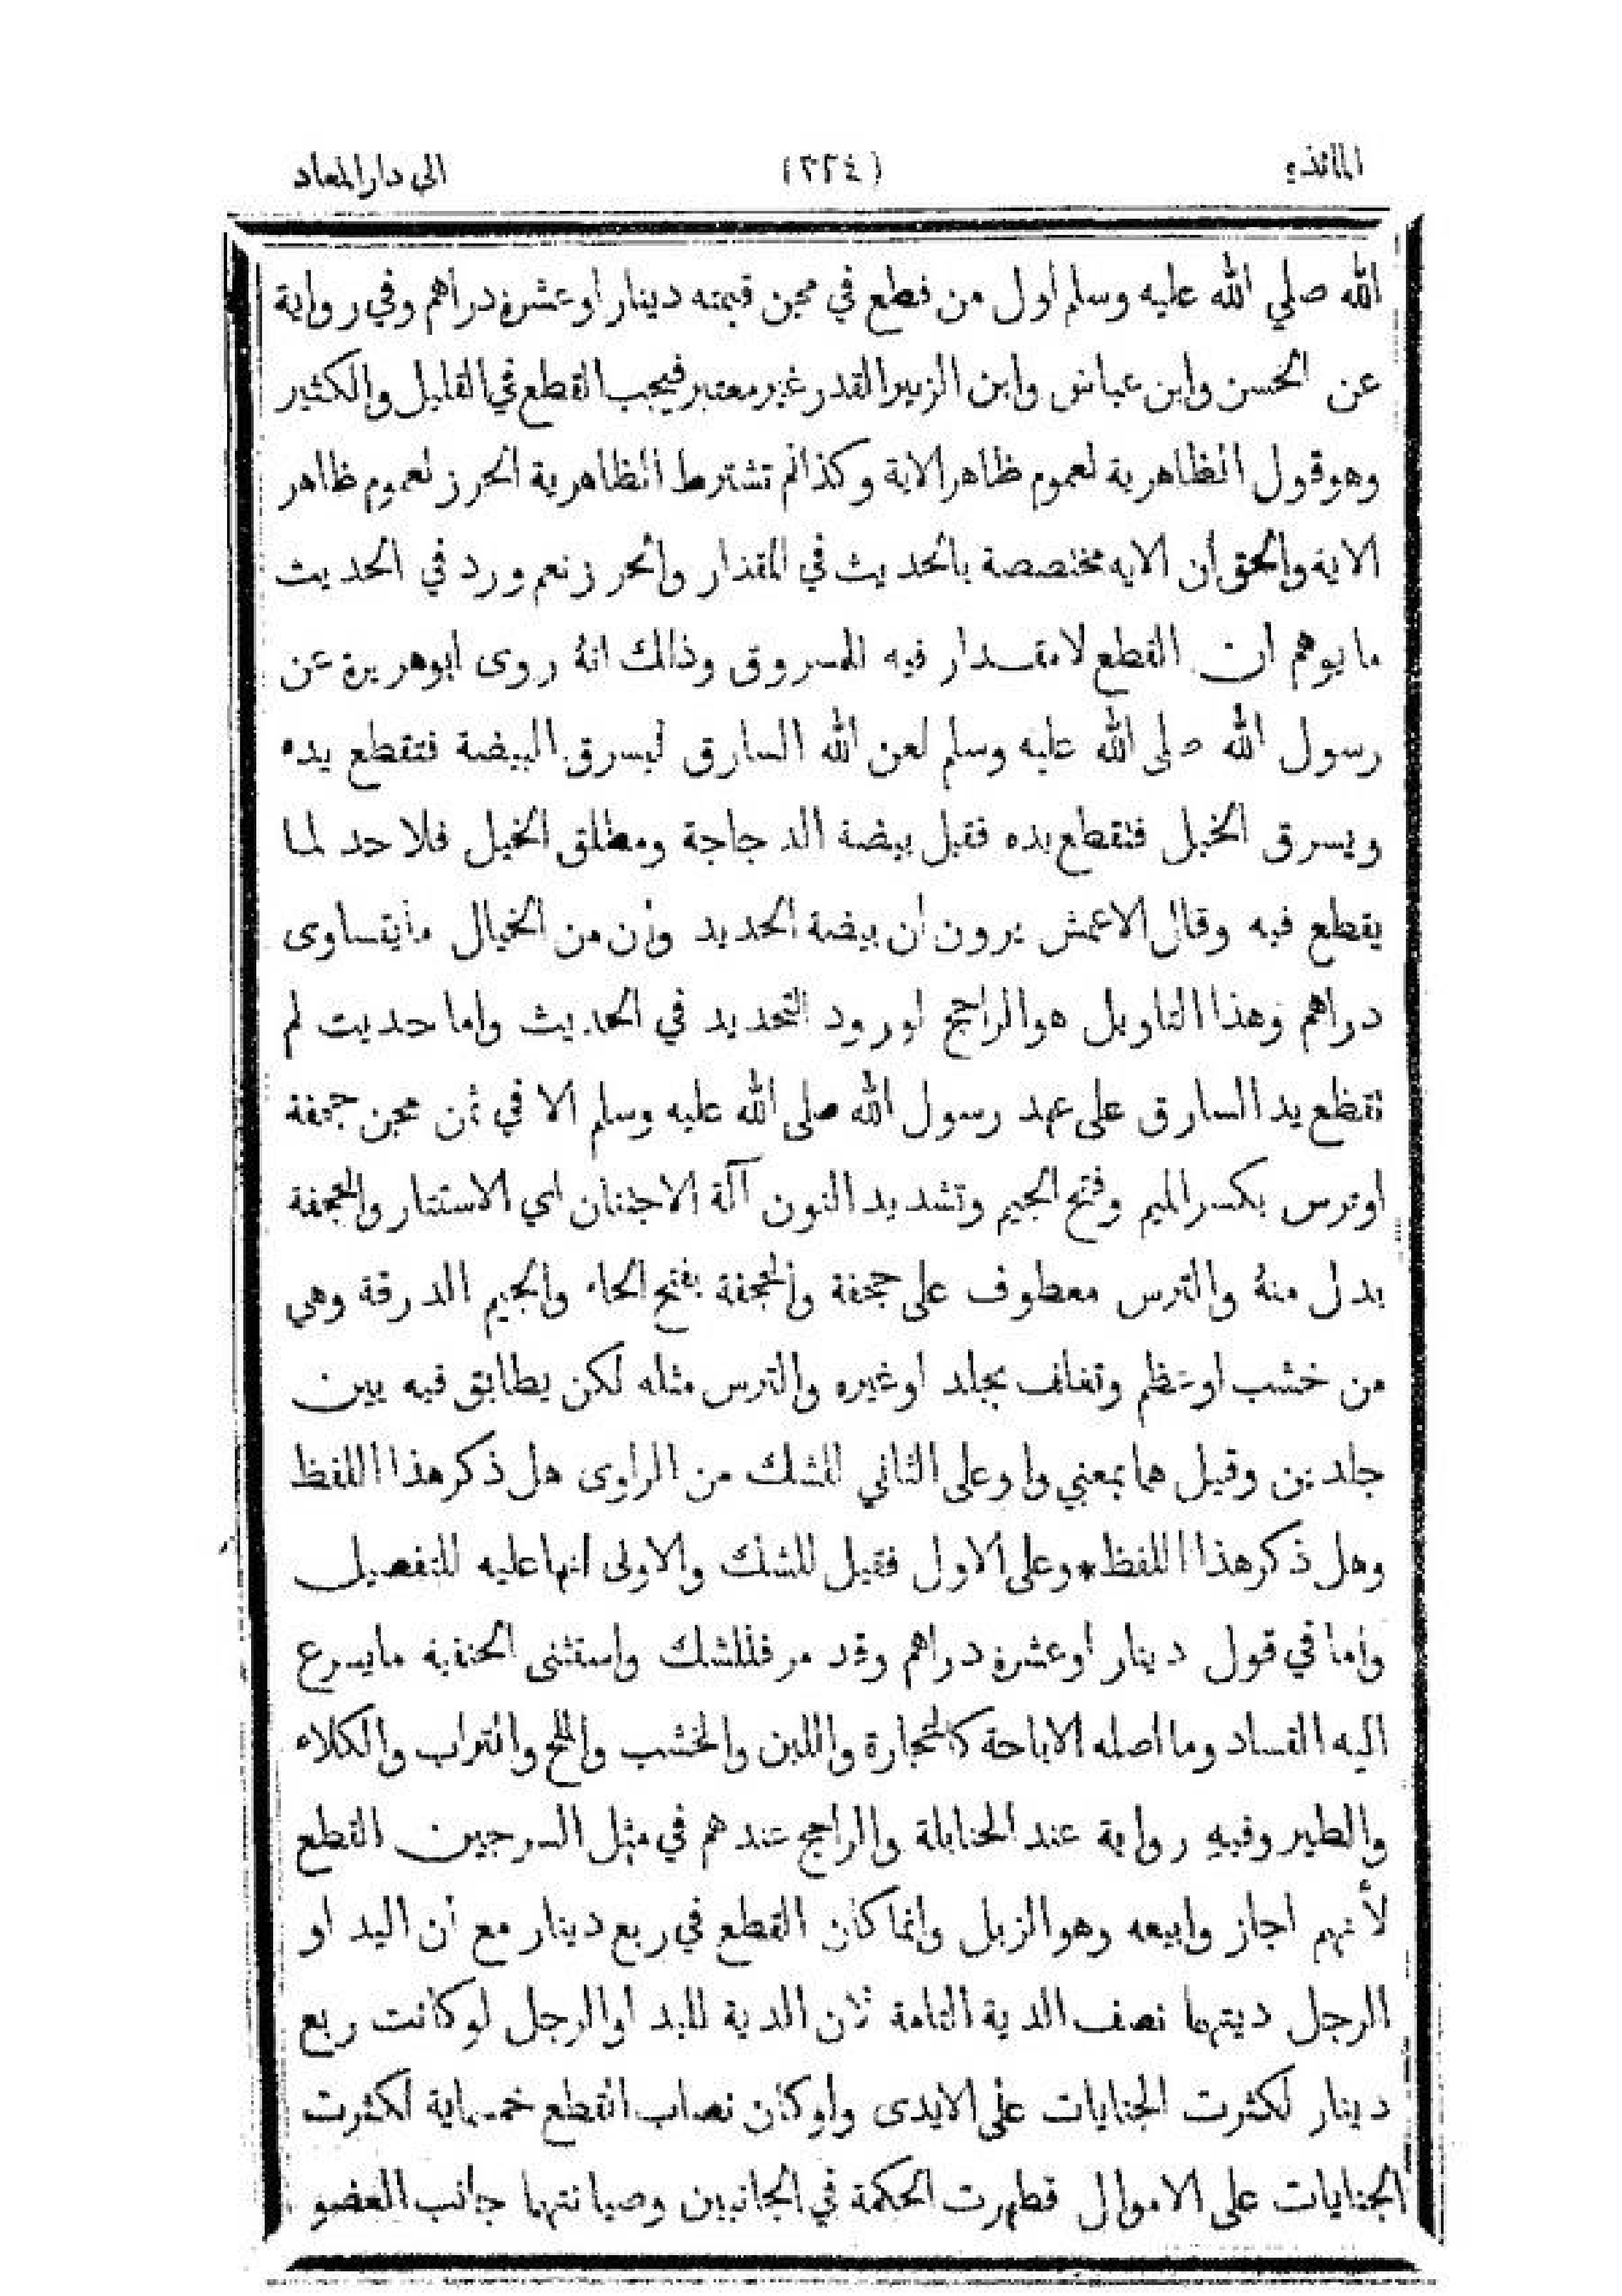 المائدة (٣٢٤) الى دار المعاد
الله صلي الله عليه وسلم اول من قطع في مجن قيمته دينار او عشرة دراهم وفي رواية
عن الحسن وابن عباس وابن الزبير القدر غير معتبر فيجب القطع في القليل والكثير
وهو قول الظاهرية لعموم ظاهر الاية وكذا لم تشترط الظاهرية الحرز لعموم ظاهر
الاية والحق أن الايه مختصصة بالحديث في المقدار والحرز نعم ورد في الحديث
ما يوهم ان القطع لا مقدار فيه للمسروق وذالك انهُ روى ابوهريرة عن
رسول الله صلى الله عليه وسلم لعن الله السارق ليسرق البيضة فتقطع يده
ويسرق الخبل فتقطع يده فقيل بيضة الدجاجة ومطلق الخبل فلا حد لما
يقطع فيه وقال الاعمش يرون ان بيضة الحديد وأن من الخبال ما يتساوى
دراهم وهذا التاويل هو الراجح لورود التحديد في الحديث واما حديت لم
تقطع يد السارق على عهد رسول الله صلى الله عليه وسلم الا في ثمن مجن حجفة
اوترس بكسر الميم وفتح الجيم وتشديد النون آلة الاجتنان اي الاستتار والحجفة
بدل منهُ والترس معطوف على حجفة والحجفة بفتح الحاء والجيم الدرقة وهى
من خشب اوعظم وتغلف بجلد اوغيره والترس مثله لكن يطابق فيه بين
جلدين وقيل هما بمعني واو على الثاني للشك من الراوى هل ذكر هذا اللفظ
وهل ذكر هذا اللفظ*وعلى الاول فقيل للشك والاولى انها عليه للتفصيل
وأما في قول دينار أوعشرة دراهم وقد مر فللشك واستثنى الحنفية ما يسرع
اليه الفساد وما اصله الاباحة كالحجارة واللبن والخشب والملح والتراب والكلاء
والطير وفيهِ رواية عند الحنابلة والراجح عندهم في مثل السرجين القطع
لأنهم اجاز وابيعه وهو الزبل وانما كان القطع في ربع دينار مع أن اليد او
الرجل ديتهما نصف الدية التامة لان الدية لليد او الرجل لو كانت ربع
دينار لكثرت الجنايات على الايدى ولو كان نصاب القطع خمسماية لكثرت
الجنايات على الاموال فظهرت الحكمة في الجانبين وصيانتهما جانب العضو